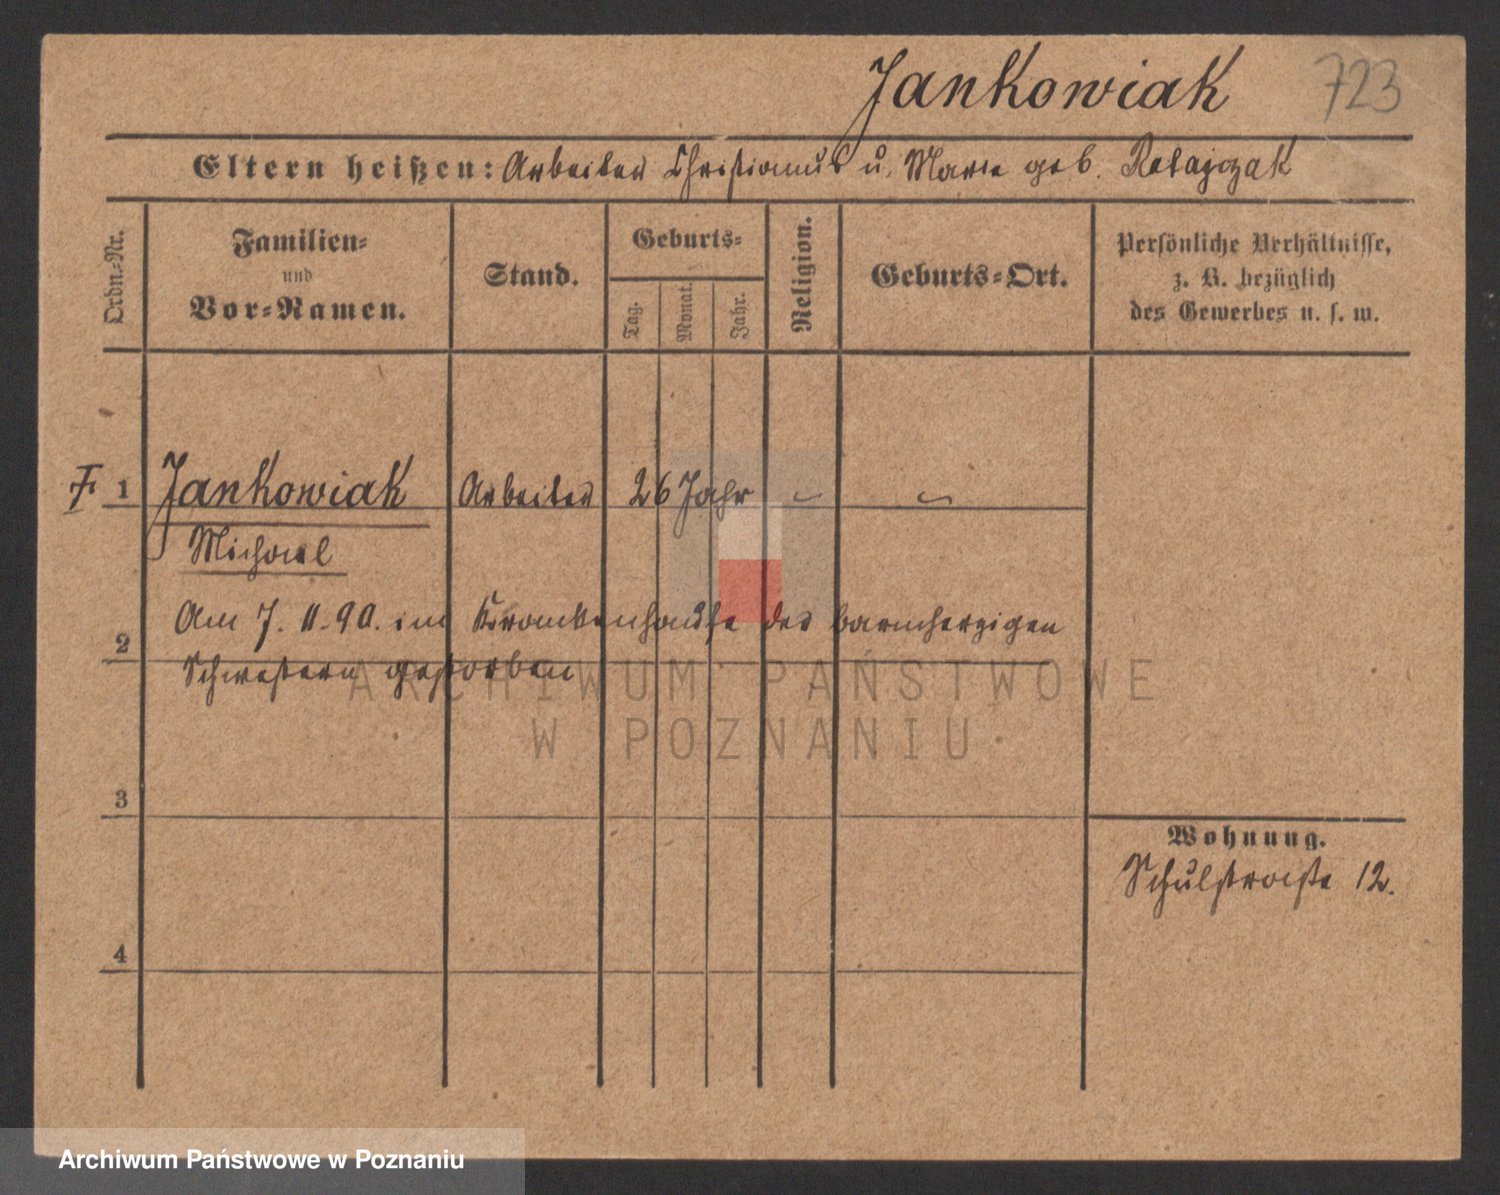 Jankowiak 723
Eltern heißen: Arbeiter Christianus u. Marie geb. Ratajczak
Ordn.-Nr.
Familien-
und
Vor-Namen.
Stand.
Geburts-
Tag.
Monat.
Jahr.
Religion.
Geburts-Ort.
Persönliche Verhältnisse,
z. B. bezüglich
des Gewerbes u. s. w.
1 Jankowiak Arbeiter 26 Jahr
Michael
Am 7. 11. 90. im Krankenhause der barmherzigen
2
Schwestern gestorben
ARCHIWUM PAŃSTWOWE
W POZNANIU
3
Wohnung.
Schulstraße 12.
4
Archiwum Państwowe w Poznaniu